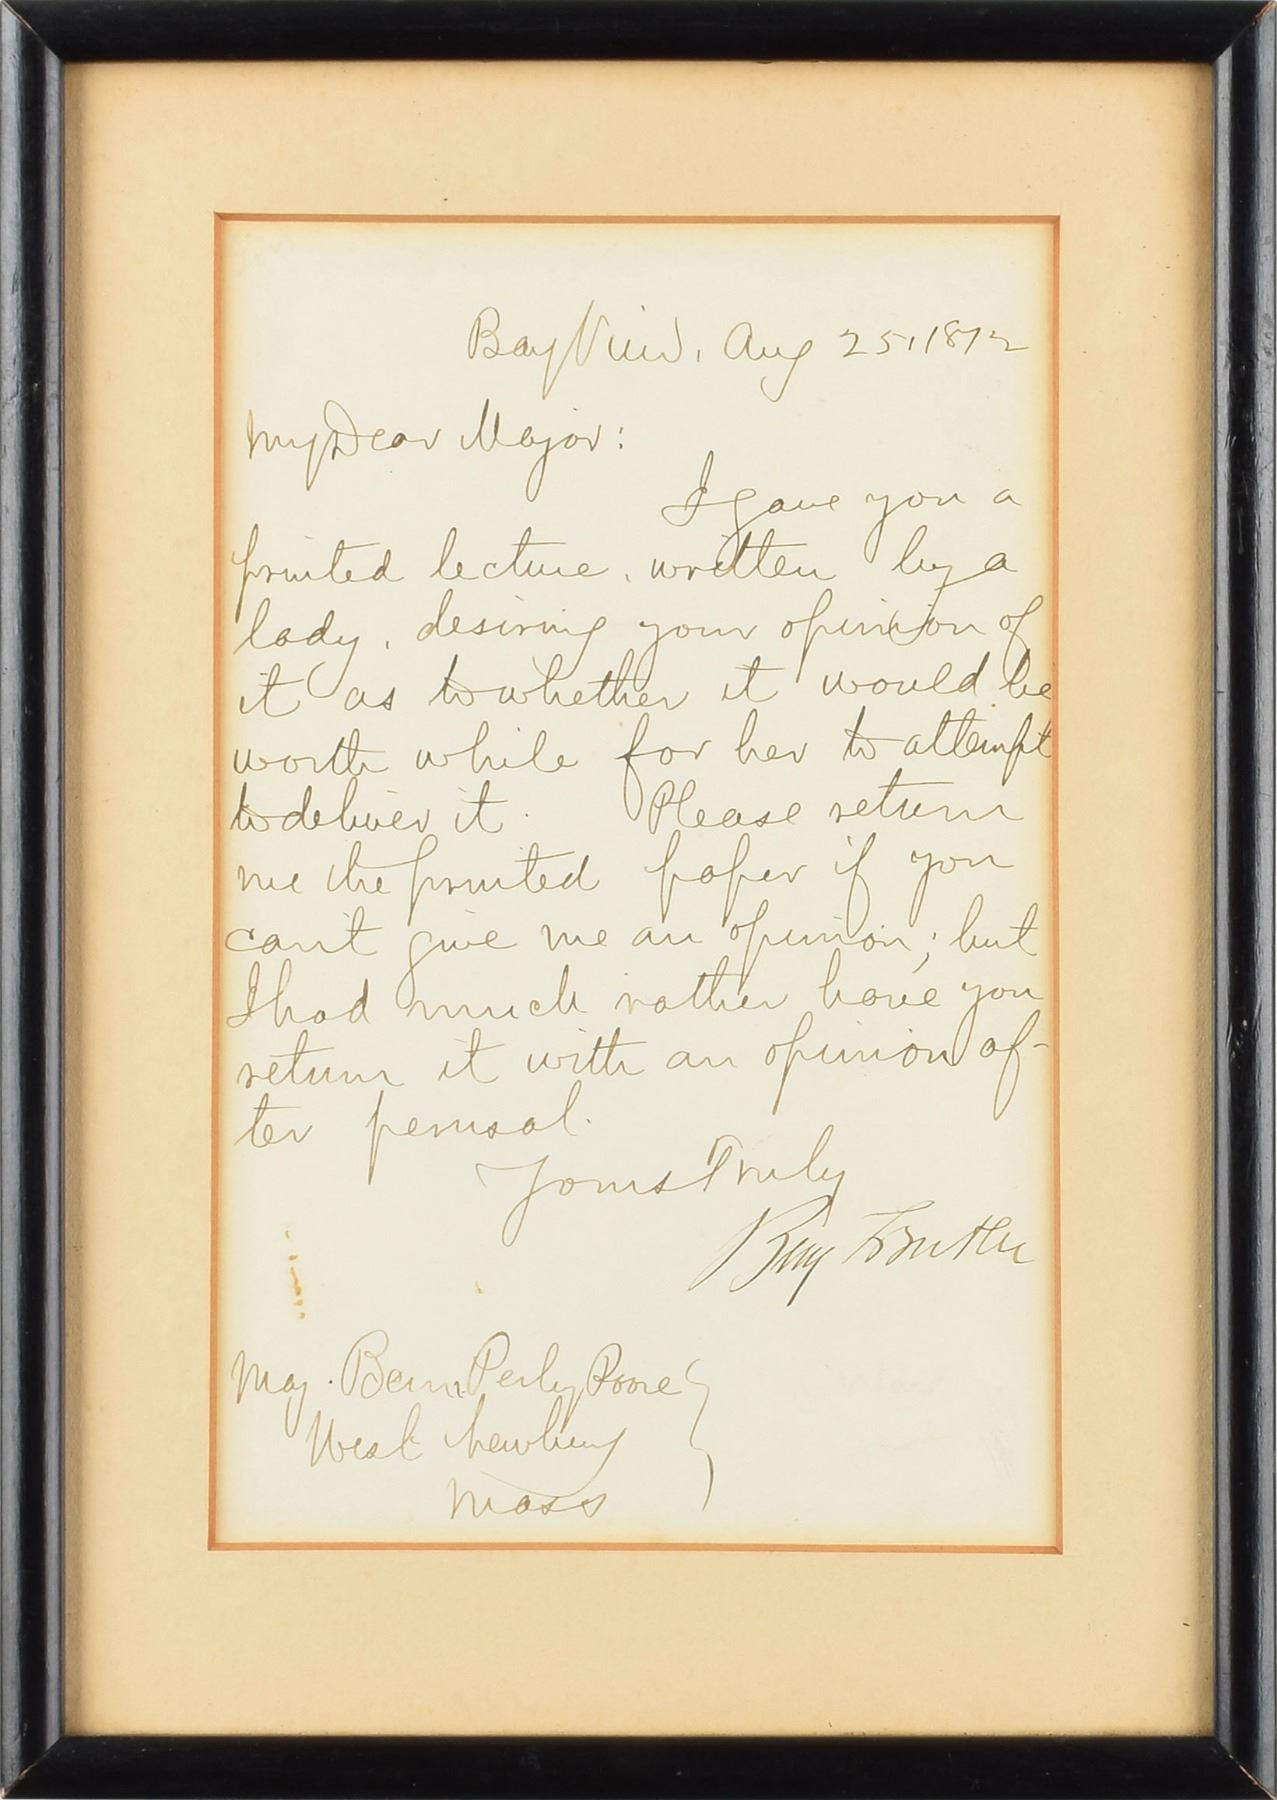 Bay View, Aug 25, 1872
My Dear Major:
I gave you a
printed lecture, written by a
lady, desiring your opinion of
it as to whether it would be
worth while for her to attempt
to deliver it. Please return
me the printed paper if you
can't give me an opinion; but
I had much rather have you
return it with an opinion af-
ter perusal.
Yours Truly
Benj F Butler
Maj. Benn Perley Poore
West Newbury
Mass